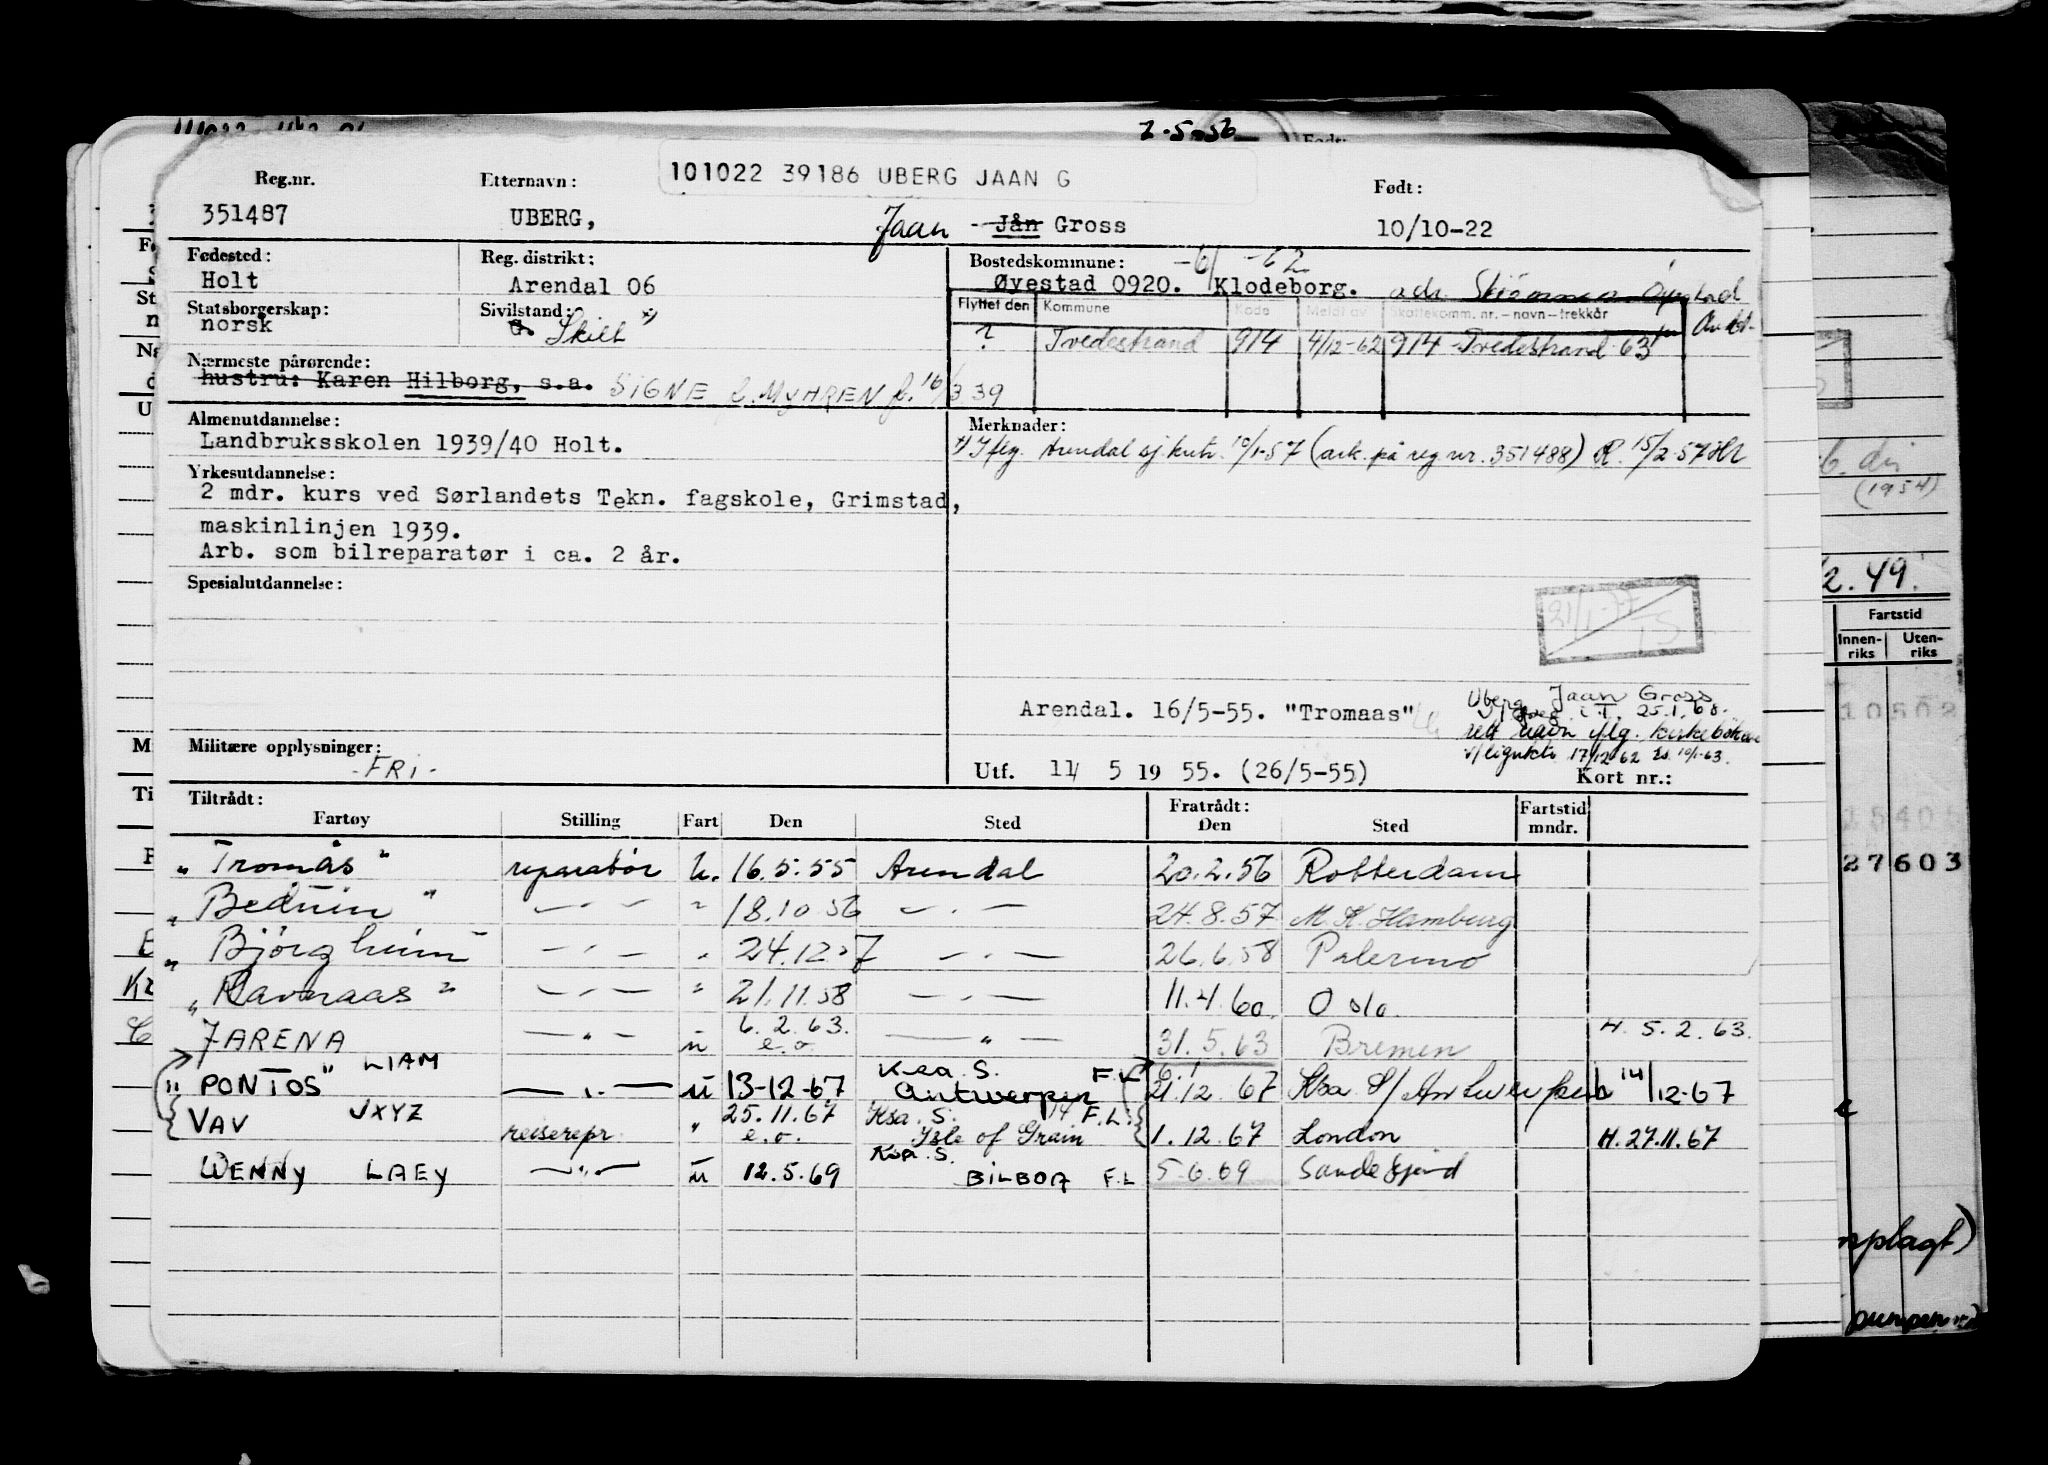 2.5.56
101022 39186 UBERG JAAN G
Reg.nr. Etternavn: Født:
351487 UBERG, Jaan Jån Gross 10/10-22
Fødested: Reg. distrikt: Bostedskommune: -6/ -62
Holt Arendal 06 Øyestad 0920. Klodeborg. adr.
Statsborgerskap: Sivilstand: Flyttet den Kommune Kode Meldt av Skattekomm. nr. - navn - trekkår
norsk Skilt x) ? Tvedestrand 914 4/12-62 914 Tvedestrand 63
Nærmeste pårørende:
hustru: Karen Hilborg, s.a. SIGNE f. MYHREN f. 16/3 39
Almenutdannelse: Merknader:
Landbruksskolen 1939/40 Holt. x) Iflg. Arendal sj.kntr. 10/1-57 (ark. på reg nr. 351488) R. 15/2-57
Yrkesutdannelse:
2 mdr. kurs ved Sørlandets Tekn. fagskole, Grimstad,
maskinlinjen 1939.
Arb. som bilreparatør i ca. 2 år.
Spesialutdannelse:
21/1-77 TS
Arendal. 16/5-55. "Tromaas" Uberg, Jaan Gross
i T. 25.1.68.
rett navn iflg. kirkebøkene
17/12 62 10/1-63.
Militære opplysninger:
-FRI- Utf. 11/ 5 19 55. (26/5-55) Kort nr.:
Tiltrådt: Fratrådt: Fartstid
Fartøy Stilling Fart Den Sted Den Sted mndr.
"Tromås" reparatør u. 16.5.55 Arendal 20.2.56 Rotterdam
"Beduin" — " — " 18.10 56 — " — 24.8.57 M.K. Hamburg
"Björgheim" — " — " 24.12.57 — " — 26.6.58 Palermo
"Ravnaas" — " — " 21.11.58 — " — 11.4.60. Oslo.
JARENA — " — u 6.2.63. e.o. — " — 31.5.63 Bremen H. 5.2.63.
"PONTOS" LIAM — " — u 13-12-67 Ksa. S. Antwerpen F.L 21.12.67 Ksa S/ Antwerpen 14/12-67
VAV JXYZ reiserepr. " 25.11.67 e.o. Ksa. S. Isle of Grain F.L. 1.12.67 London H. 27.11.67
WENNY LAEY — " — u 12.5.69 Ksa. S. BILBOA F.L 5.6.69 Sandefjord
(1954)
2.49.
Fartstid
Innen-riks Uten-riks
10502
27603